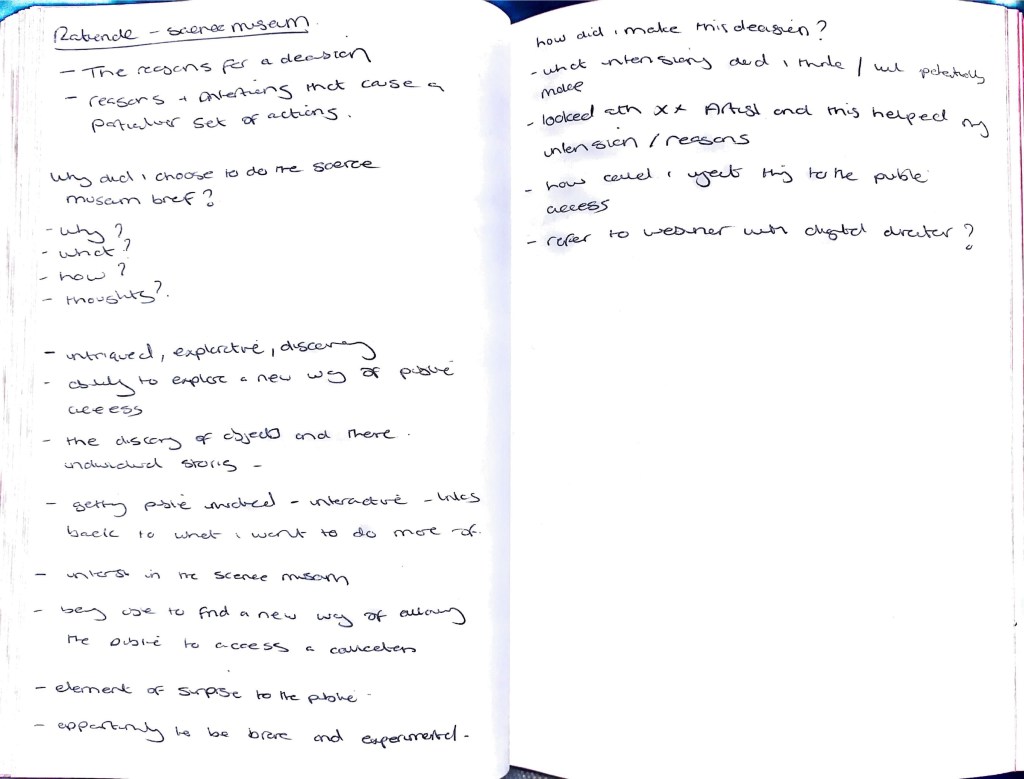 Rationale - science museum.
- The reasons for a decision
- reasons + intentions that cause a
particular set of actions.
Why did i choose to do the science
museum brief?
- why?
- what?
- how?
- thoughts?.
- intriqued, explorative, discovery
- ability to explore a new way of public
access
- the discovery of objects and there.
individual stories -
- getting public involved - interactive - links
back to what i want to do more of.
- interest in the science museum
- being able to find a new way of allowing
the public to access a collection
- element of surprise to the public -
- opportunity to be brave and experimental -
how did i make this decision?
- what intensions did i make / will potentially
make
- looked at xx Artist and this helped my
intension / reasons
- how could i inject this to the public
access
- refer to webiner with digital director?